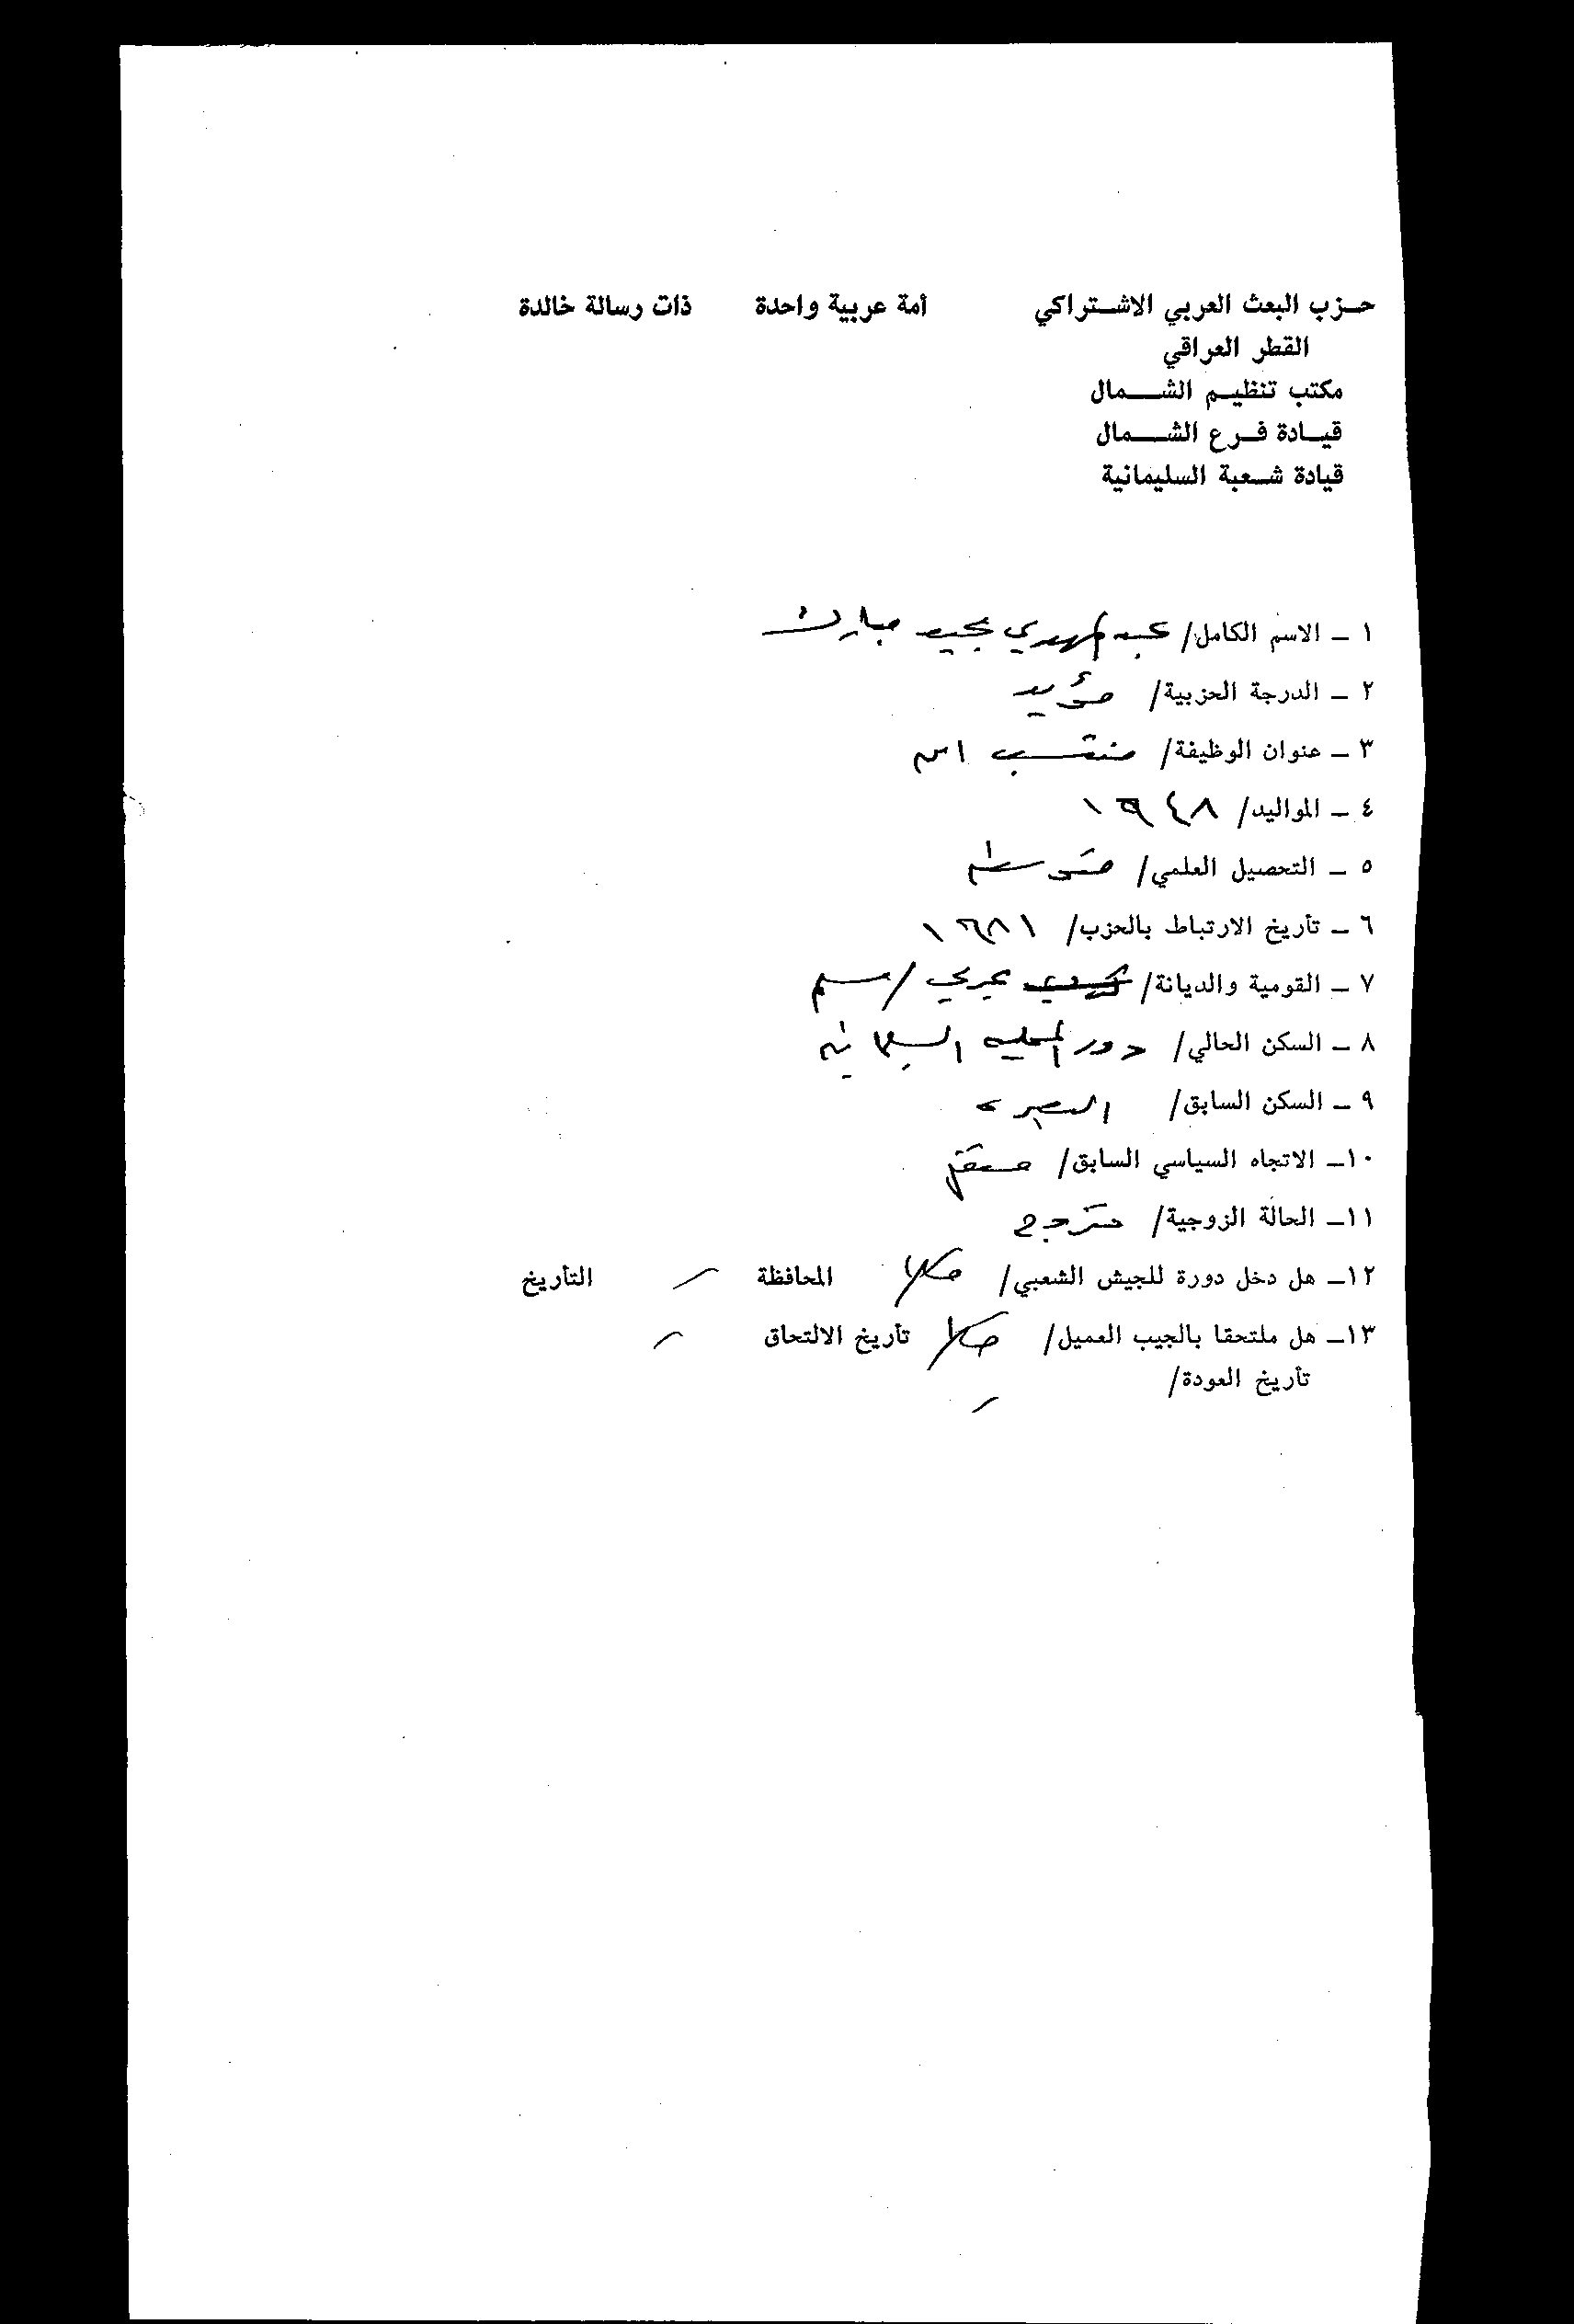 حزب البعث العربي الاشتراكي أمة عربية واحدة ذات رسالة خالدة
القطر العراقي
مكتب تنظيم الشمال
قيادة فرع الشمال
قيادة شعبة السليمانية
١ - الاسم الكامل/ عبد المهدي مجيد مبارك
٢ - الدرجة الحزبية/ مؤيد
٣ - عنوان الوظيفة/ منتسب امن
٤ - المواليد/ ١٩٤٨
٥ - التحصيل العلمي/ متوسطه
٦ - تأريخ الارتباط بالحزب/ ١٩٨١
٧ - القومية والديانة/ عربي / مسلم
٨ - السكن الحالي/ دور المحلية السليمانية
٩ - السكن السابق/ البصرة
١٠- الاتجاه السياسي السابق/ مستقل
١١- الحالة الزوجية/ متزوج
١٢- هل دخل دورة للجيش الشعبي/ كلا المحافظة - التأريخ
١٣- هل ملتحقا بالجيب العميل/ كلا تأريخ الالتحاق -
تأريخ العودة/ -